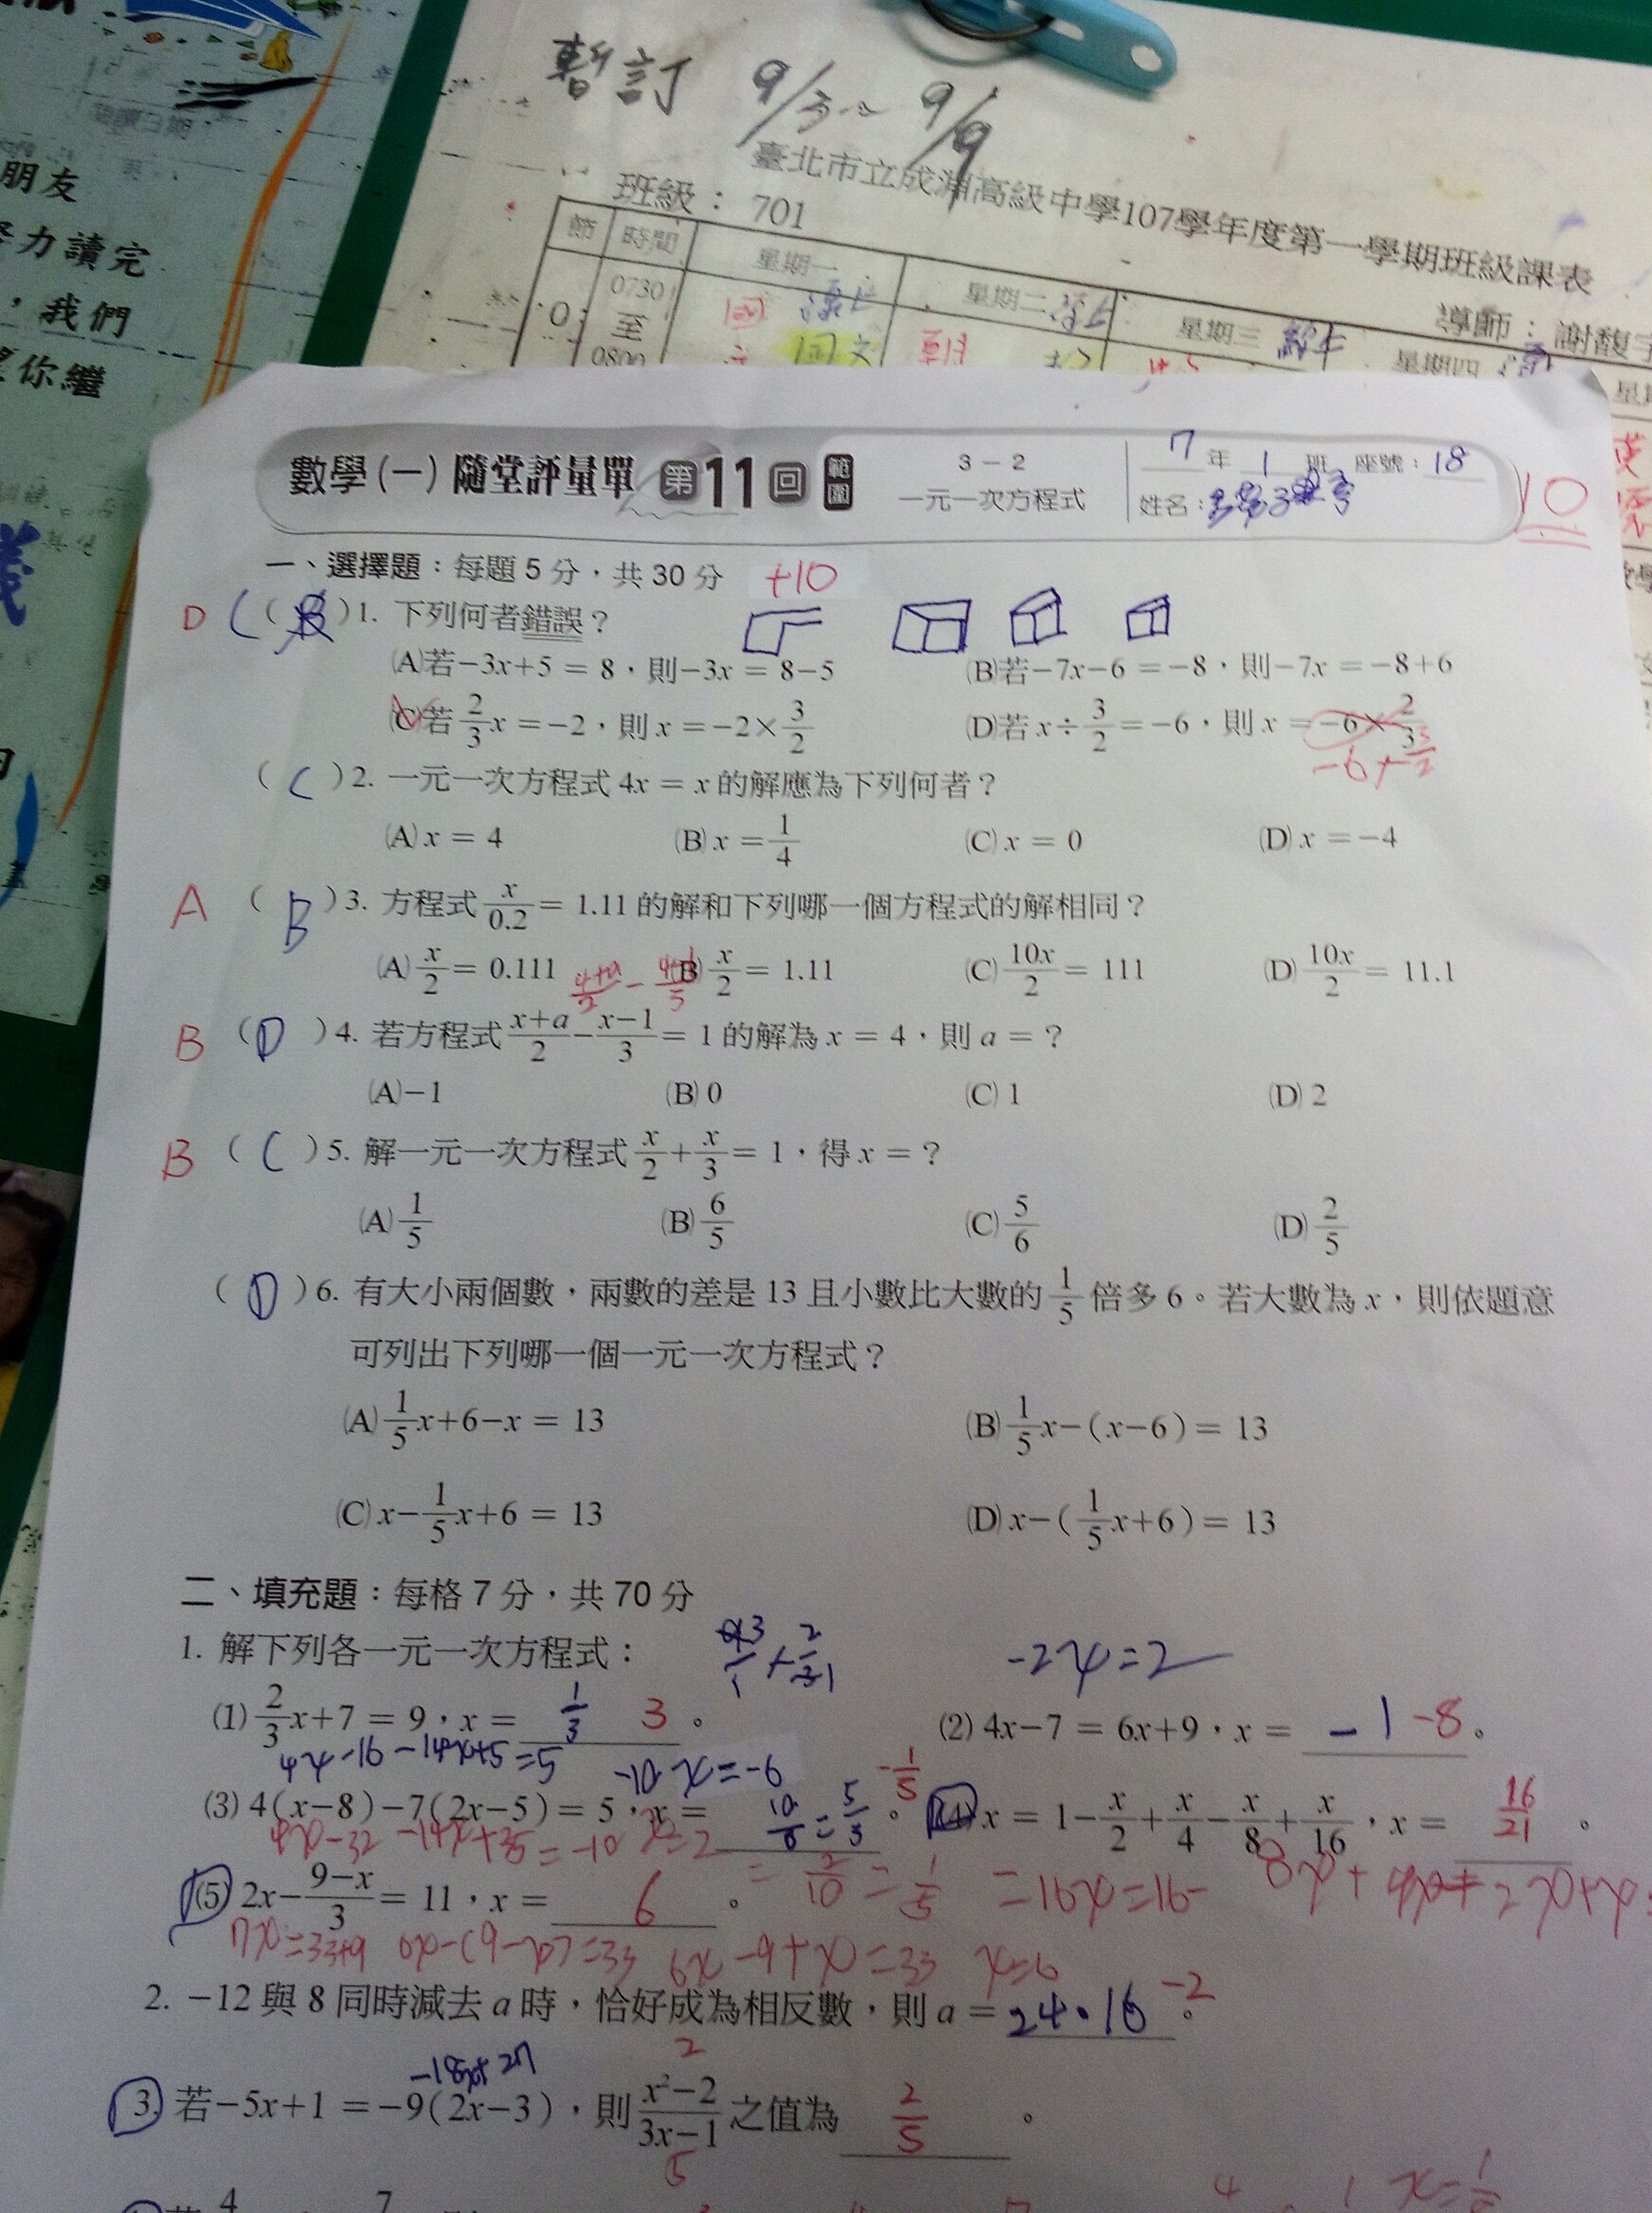 朋友
力讀完
，我們
你繼
暫訂 9/3~9/9
臺北市立成淵高級中學107學年度第一學期班級課表
班級：701
導師：謝馥
節 時間 星期一 星期二 星期三 星期四
0 0730
至
0800
國文
數學(一) 隨堂評量單 第11回 範圍
3－2
一元一次方程式
7年 1班 座號：18
姓名：
10
一、選擇題：每題5分，共30分 +10
D ( ( B )1. 下列何者錯誤？
(A)若−3x+5 = 8，則−3x = 8−5 (B)若−7x−6 = −8，則−7x = −8+6
(C)若2/3x = −2，則x = −2×3/2 (D)若x÷3/2 = −6，則x = −6×2/3
( C )2. 一元一次方程式4x = x的解應為下列何者？
(A) x = 4 (B) x = 1/4 (C) x = 0 (D) x = −4
A ( B )3. 方程式x/0.2 = 1.11的解和下列哪一個方程式的解相同？
(A) x/2 = 0.111 (B) x/2 = 1.11 (C) 10x/2 = 111 (D) 10x/2 = 11.1
B ( D )4. 若方程式(x+a)/2−(x−1)/3 = 1的解為x = 4，則a = ？
(A)−1 (B) 0 (C) 1 (D) 2
B ( C )5. 解一元一次方程式x/2+x/3 = 1，得x = ？
(A) 1/5 (B) 6/5 (C) 5/6 (D) 2/5
( D )6. 有大小兩個數，兩數的差是13且小數比大數的1/5倍多6。若大數為x，則依題意
可列出下列哪一個一元一次方程式？
(A) 1/5x+6−x = 13 (B) 1/5x−(x−6) = 13
(C) x−1/5x+6 = 13 (D) x−(1/5x+6) = 13
二、填充題：每格7分，共70分
1. 解下列各一元一次方程式：
-2x=2
(1) 2/3x+7 = 9，x = 1/3 3。
(2) 4x−7 = 6x+9，x = −1 -8。
4x-16-14x+5=5 -10x=-6
(3) 4(x−8)−7(2x−5) = 5，x = 10/6=5/3 -1/5。
(4) x = 1−x/2+x/4−x/8+x/16，x = 16/21。
4x-32-14x+35=-10x=2 =2/10=1/5
=16x=16-8x+4x+2x+x
(5) 2x−(9−x)/3 = 11，x = 6。
7x=33+9 6x-(9-x)=33 6x-9+x=33 x=6
2. −12與8同時減去a時，恰好成為相反數，則a = 24.16 -2。
-18x+27
3. 若−5x+1 = −9(2x−3)，則(x²−2)/(3x−1)之值為 2/5。